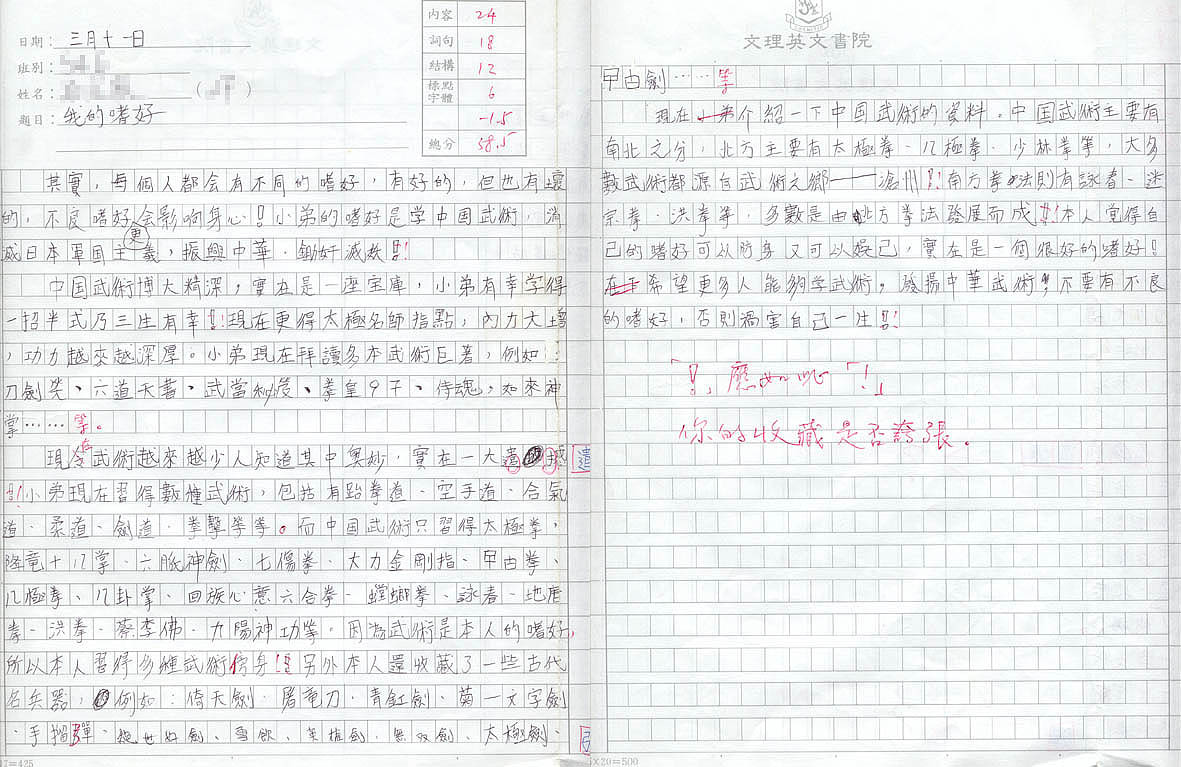 日期：三月十一日
性別：
姓名：（ ）
題目：我的嗜好
內容 24
詞句 18
結構 12
標點字體 6
-1.5
總分 58.5
其實，每個人都会有不同的嗜好，有好的，但也有壞
的，不良嗜好会影响身心！小弟的嗜好是学中国武術，消
滅日本軍国主義，振興中華，鋤奸滅敵！
中国武術博大精深，實在是一座宝庫，小弟有幸学得
一招半式乃三生有幸！現在更得太極名師指點，內力大增
，功力越來越深厚。小弟現在拜讀多本武術巨著，例如：
刀劍笑、六道天書、武當秘笈、拳皇97、侍魂，如來神
掌……等。
現今武術越來越少人知道其中奧妙，實在一大遺憾
！小弟現在習得數種武術，包括有跆拳道、空手道、合氣
道、柔道、劍道、拳擊拳等。而中国武術只習得太極拳，
降竜十八掌、六脈神劍、七傷拳、大力金剛指、甲古拳、
八極拳、八卦掌、回族心意六合拳、螳螂拳、詠春、地
拳、洪拳、蔡李佛、九陽神功拳。因為武術是本人的嗜好，
所以本人習得多種武術傍身！另外本人還收藏了一些古代
石兵器，例如：倚天劍、屠竜刀、青釭劍、菊一文字劍
、手榴彈、絕世好劍、雪飲、無双劍、太極劍、
17=425
遺
文理英文書院
甲古劍……等
現在小弟介紹一下中国武術的資料。中国武術主要有
南北之分，北方主要有太極拳、八極拳、少林拳等，大多
數武術都源自武術之鄉——滄州！南方拳法則有詠春、迷
宗拳、洪拳等，多數是由北方拳法發展而成！本人覚得自
己的嗜好可以防身又可以娛己，實在是一個很好的嗜好！
在于希望更多人能夠学武術，發揚中華武術，不要有不良
的嗜好，否則禍害自己一生！
「！」應如此「！」
你的收藏是否誇張。
5X20=500